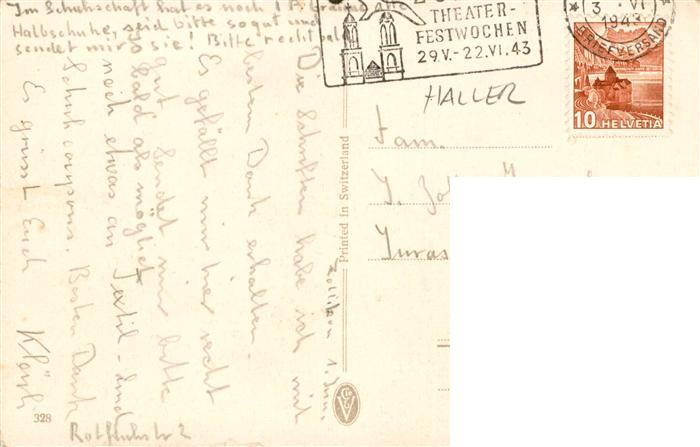 Im Schuhschaft hat es noch 1 P. alte
Halbschuhe, seid bitte so gut und
sendet mir sie! Bitte recht bald
Zollikon 1. Juni
Die Schriften habe ich mit
bestem Dank erhalten.
Es gefällt mir hier recht
gut. Sendet mir bitte
bald als möglich
noch etwas an Textil- und
Schuhcoupons. Besten Dank
Es grüsst Euch
328
THEATER-
FESTWOCHEN
29.V.-22.VI.43
3. VI
1943
BRIEFVERSAND
10 HELVETIA
HALLER
Fam.
Juras
Printed in Switzerland